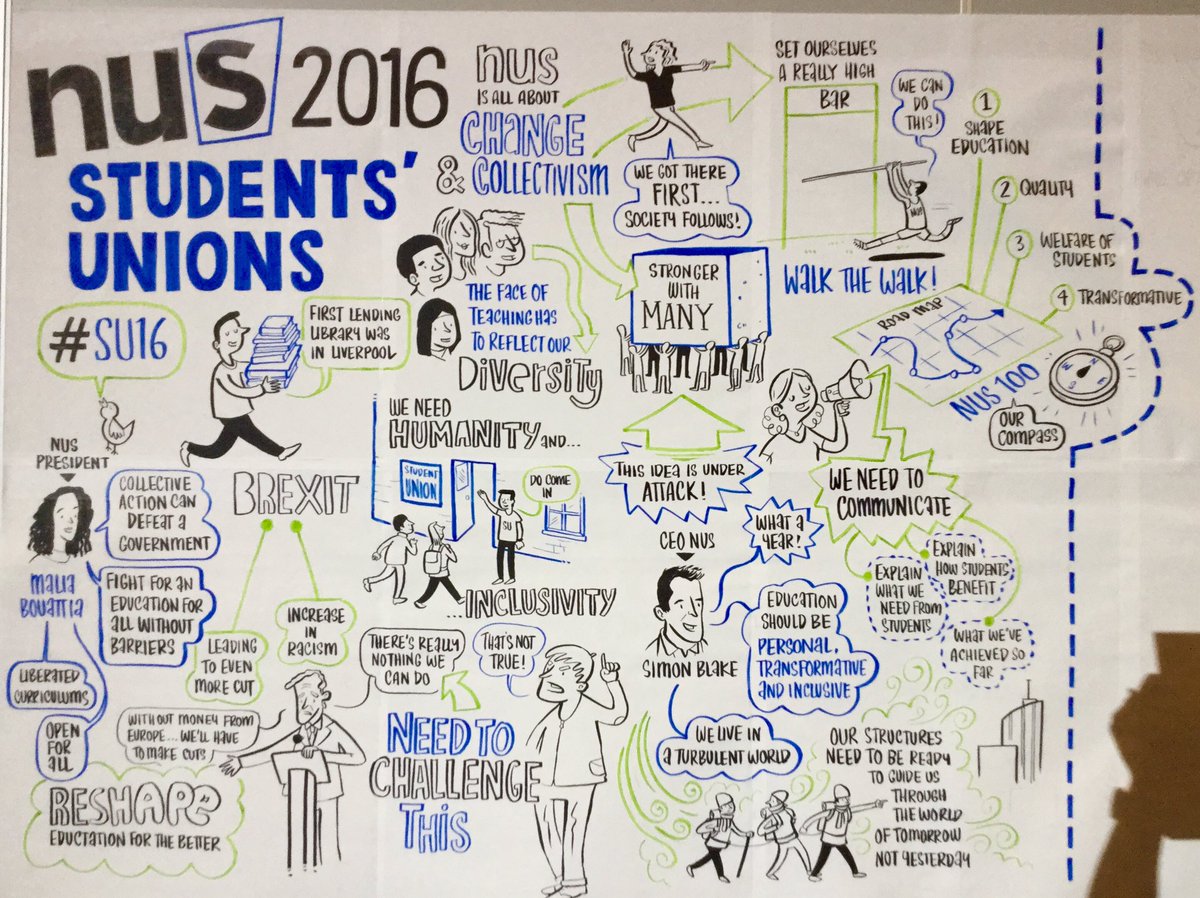 nus 2016
STUDENTS'
UNIONS
#SU16
FIRST LENDING
LIBRARY WAS
IN LIVERPOOL
nus
IS ALL ABOUT
CHANGE
& COLLECTIVISM
WE GOT THERE
FIRST...
SOCIETY FOLLOWS!
SET OURSELVES
A REALLY HIGH
BAR
WE CAN
DO
THIS!
NUS
WALK THE WALK!
1
SHAPE
EDUCATION
2 QUALITY
3 WELFARE OF
STUDENTS
4 TRANSFORMATIVE
ROAD MAP
NUS 100
OUR
COMPASS
N
E
S
W
THE FACE OF
TEACHING HAS
TO REFLECT OUR
DIVERSITY
STRONGER
WITH
MANY
THIS IDEA IS UNDER
ATTACK!
WE NEED TO
COMMUNICATE
EXPLAIN
WHAT WE
NEED FROM
STUDENTS
EXPLAIN
HOW STUDENTS
BENEFIT
WHAT WE'VE
ACHIEVED SO
FAR
WE NEED
HUMANITY AND...
STUDENT
UNION
DO COME
IN
SU
...INCLUSIVITY
NUS
PRESIDENT
MALIA
BOUATTIA
COLLECTIVE
ACTION CAN
DEFEAT A
GOVERNMENT
FIGHT FOR AN
EDUCATION FOR
ALL WITHOUT
BARRIERS
LIBERATED
CURRICULUMS
OPEN
FOR
ALL
RESHAPE
EDUCTATION FOR THE BETTER
BREXIT
LEADING
TO EVEN
MORE CUT
INCREASE
IN
RACISM
WITHOUT MONEY FROM
EUROPE... WE'LL HAVE
TO MAKE CUTS
THERE'S REALLY
NOTHING WE
CAN DO
THAT'S NOT
TRUE!
NEED TO
CHALLENGE
THIS
CEO NUS
SIMON BLAKE
WHAT A
YEAR!
EDUCATION
SHOULD BE
PERSONAL,
TRANSFORMATIVE
AND INCLUSIVE
WE LIVE IN
A TURBULENT WORLD
OUR STRUCTURES
NEED TO BE READY
TO GUIDE US
THROUGH
THE WORLD
OF TOMORROW
NOT YESTERDAY